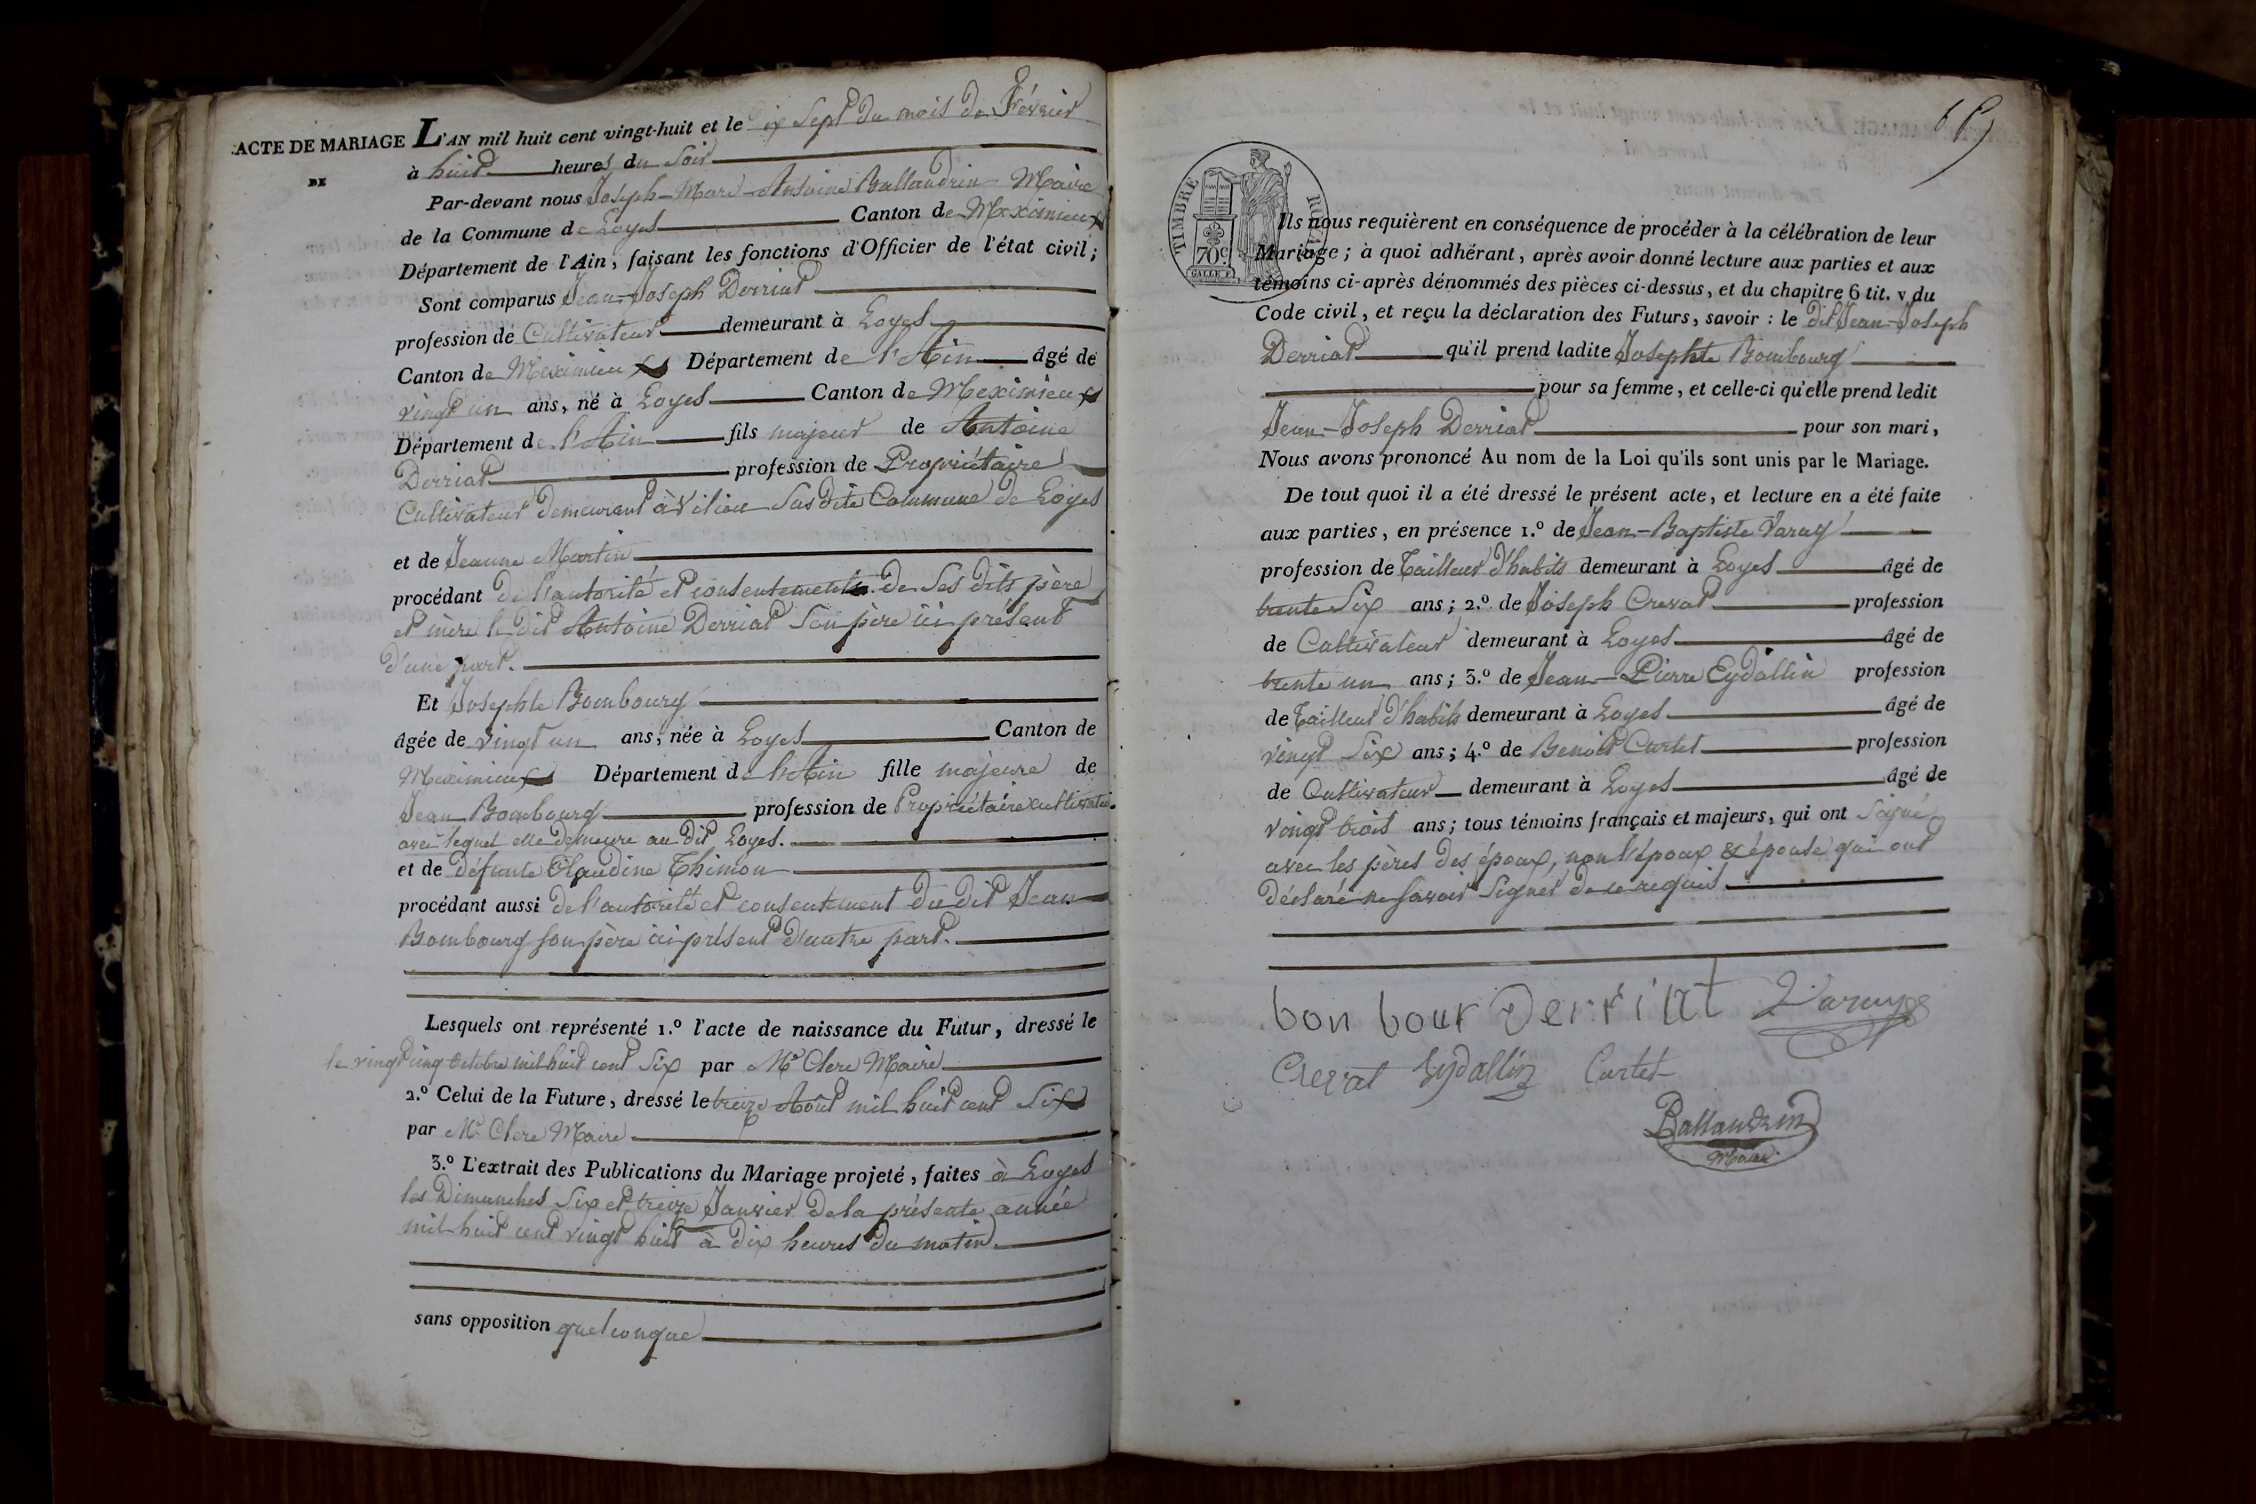 ACTE DE MARIAGE L'AN mil huit cent vingt-huit et le dix Sept du mois de Février
DE
à huit heures du Soir
Par-devant nous Joseph-Marie-Antoine Ballandrin Maire
de la Commune de Loyes Canton de Meximieux
Département de l'Ain, faisant les fonctions d'Officier de l'état civil;
Sont comparus Jean-Joseph Derriat
profession de Cultivateur demeurant à Loyes
Canton de Meximieux Département de l'Ain âgé de
vingt un ans, né à Loyes Canton de Meximieux
Département de l'Ain fils majeur de Antoine
Derriat profession de Propriétaire
Cultivateur demeurant à Vilieu Susdite Commune de Loyes
et de Jeanne Martin
procédant de l'autorité et consentement de Ses dits père
et mère le dit Antoine Derriat Son père ici présent
d'une part.
Et Josephte Bombourg
âgée de vingt un ans, née à Loyes Canton de
Meximieux Département de l'Ain fille majeure de
Jean Bombourg profession de Propriétaire cultivateur
avec lequel elle demeure au dit Loyes.
et de défunte Claudine Thimon
procédant aussi de l'autorité et consentement du dit Jean
Bombourg son père ici présent d'autre part.
Lesquels ont représenté 1.º l'acte de naissance du Futur, dressé le
le vingt cinq octobre mil huit cent Six par Mr Clerc Maire
2.º Celui de la Future, dressé le treize Août mil huit cent Six
par Mr Clerc Maire
3.º L'extrait des Publications du Mariage projeté, faites à Loyes
les Dimanches Six et treize Janvier de la présente année
mil huit cent vingt huit à dix heures du matin
sans opposition quelconque
TIMBRE ROYAL
70c.
Ils nous requièrent en conséquence de procéder à la célébration de leur
Mariage; à quoi adhérant, après avoir donné lecture aux parties et aux
témoins ci-après dénommés des pièces ci-dessus, et du chapitre 6 tit. v du
Code civil, et reçu la déclaration des Futurs, savoir: le dit Jean-Joseph
Derriat qu'il prend ladite Josephte Bombourg
pour sa femme, et celle-ci qu'elle prend ledit
Jean-Joseph Derriat pour son mari,
Nous avons prononcé Au nom de la Loi qu'ils sont unis par le Mariage.
De tout quoi il a été dressé le présent acte, et lecture en a été faite
aux parties, en présence 1.º de Jean-Baptiste Varay
profession de Tailleur d'habits demeurant à Loyes âgé de
trente Six ans; 2.º de Joseph Crevat profession
de Cultivateur demeurant à Loyes âgé de
trente un ans; 3.º de Jean-Pierre Eydallin profession
de Tailleur d'habits demeurant à Loyes âgé de
vingt Six ans; 4.º de Benoit Curtet profession
de Cultivateur demeurant à Loyes âgé de
vingt trois ans; tous témoins français et majeurs, qui ont Signé
avec les pères des époux, non l'époux & épouse qui ont
déclaré ne savoir Signer de ce requis
bon bour Derriat Varay
Crevat Eydallin Curtet
Ballandrin
Maire